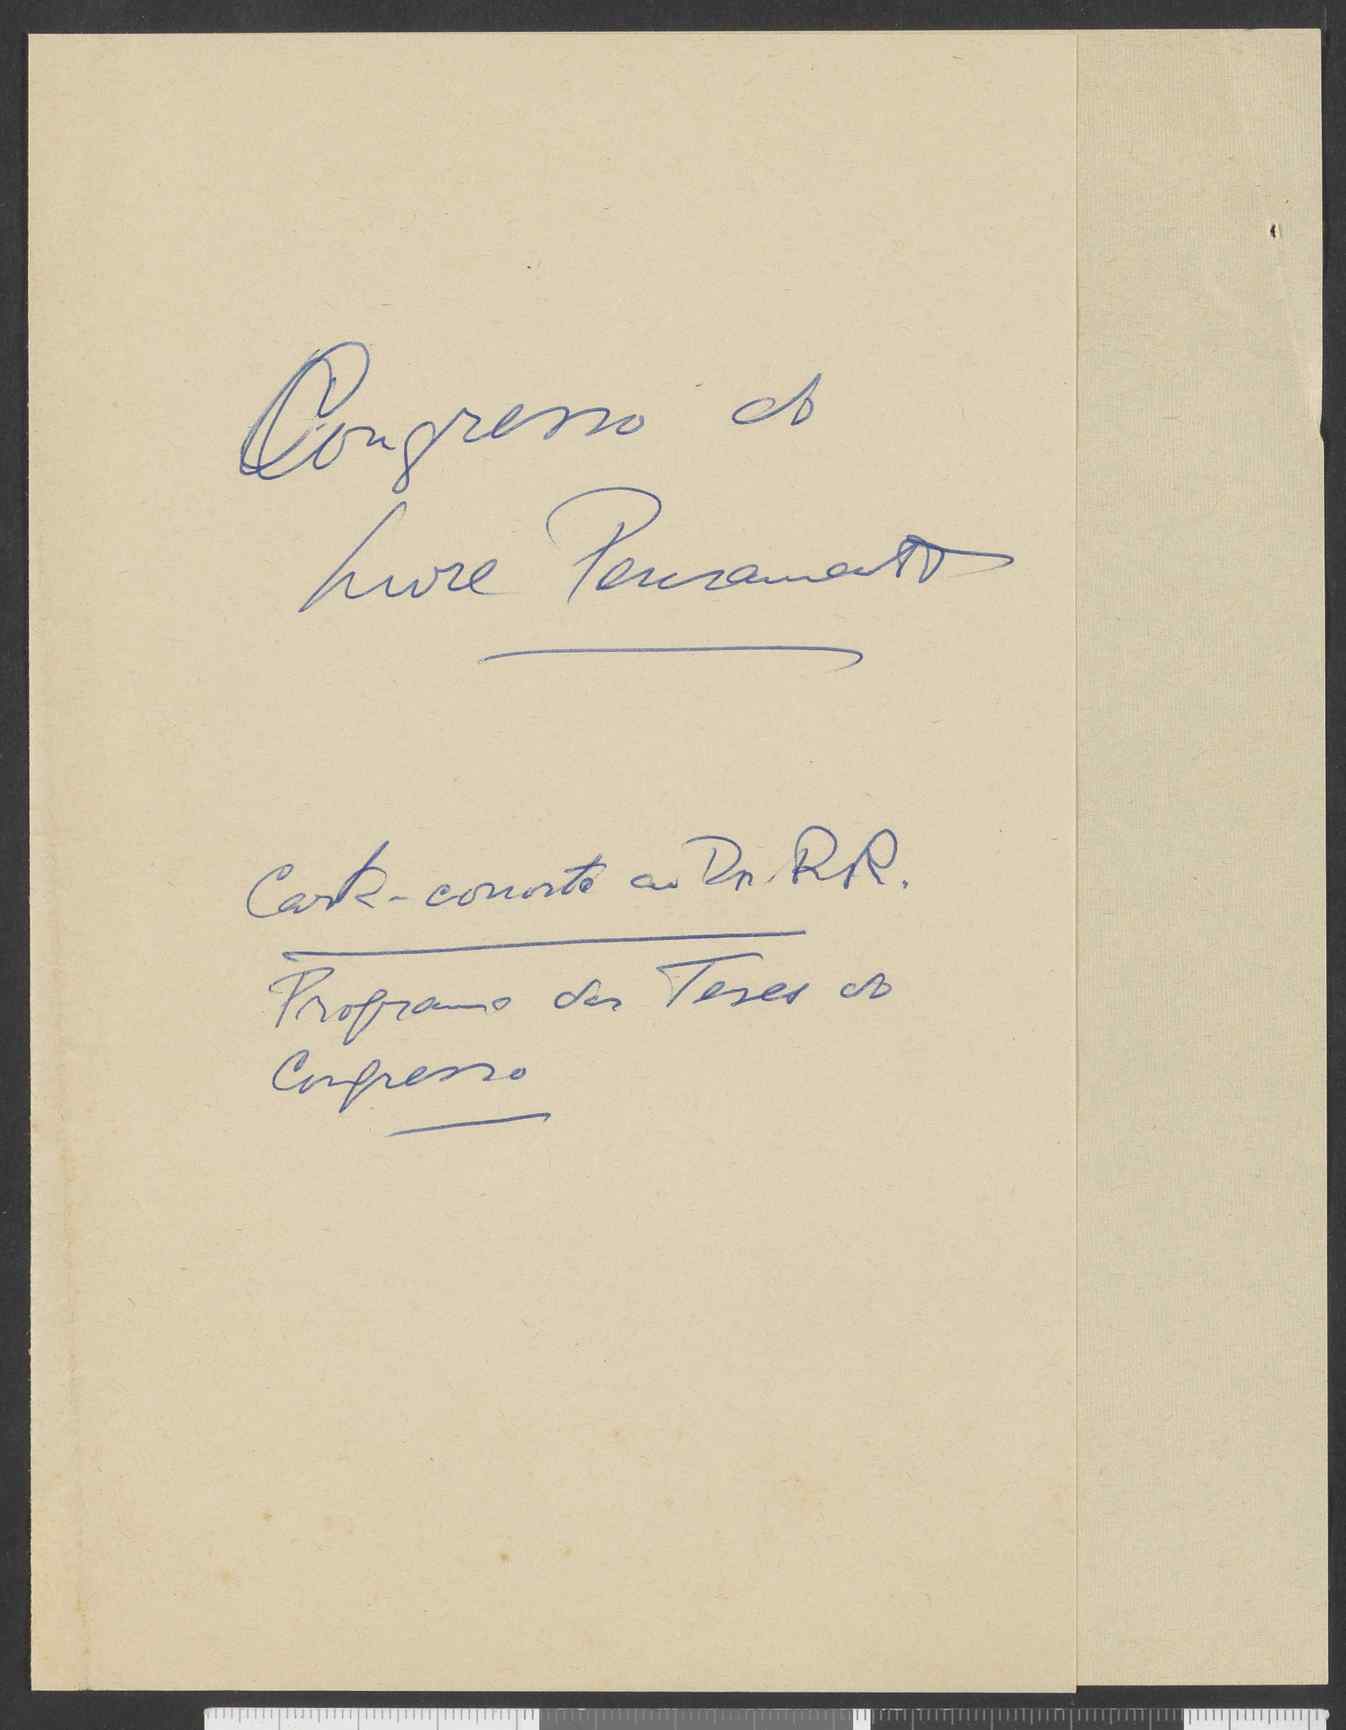 Congresso do
Livre Pensamento
Carta-convite ao Dr. R. R.
Programa das Teses do
Congresso